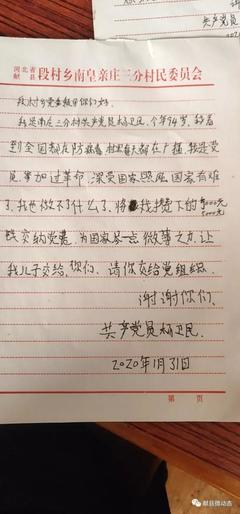 共产党
河北省
献县
段村乡南皇亲庄三分村民委员会
段村乡党委领导你们好.
我是南庄三分村共产党员杨卫民,今年74岁,
到全国都在防病毒 村里每天都在广播,我是党
员 参加过革命,深受国家恩
了,我也做不了什么了,将我攒下的
5000元
钱交纳党费,为国家尽一点微薄之力,让
我儿子交给你们,请你交给党组织.
谢谢你们.
共产党员杨卫民.
2020年1月31日
第 页
献县微动态